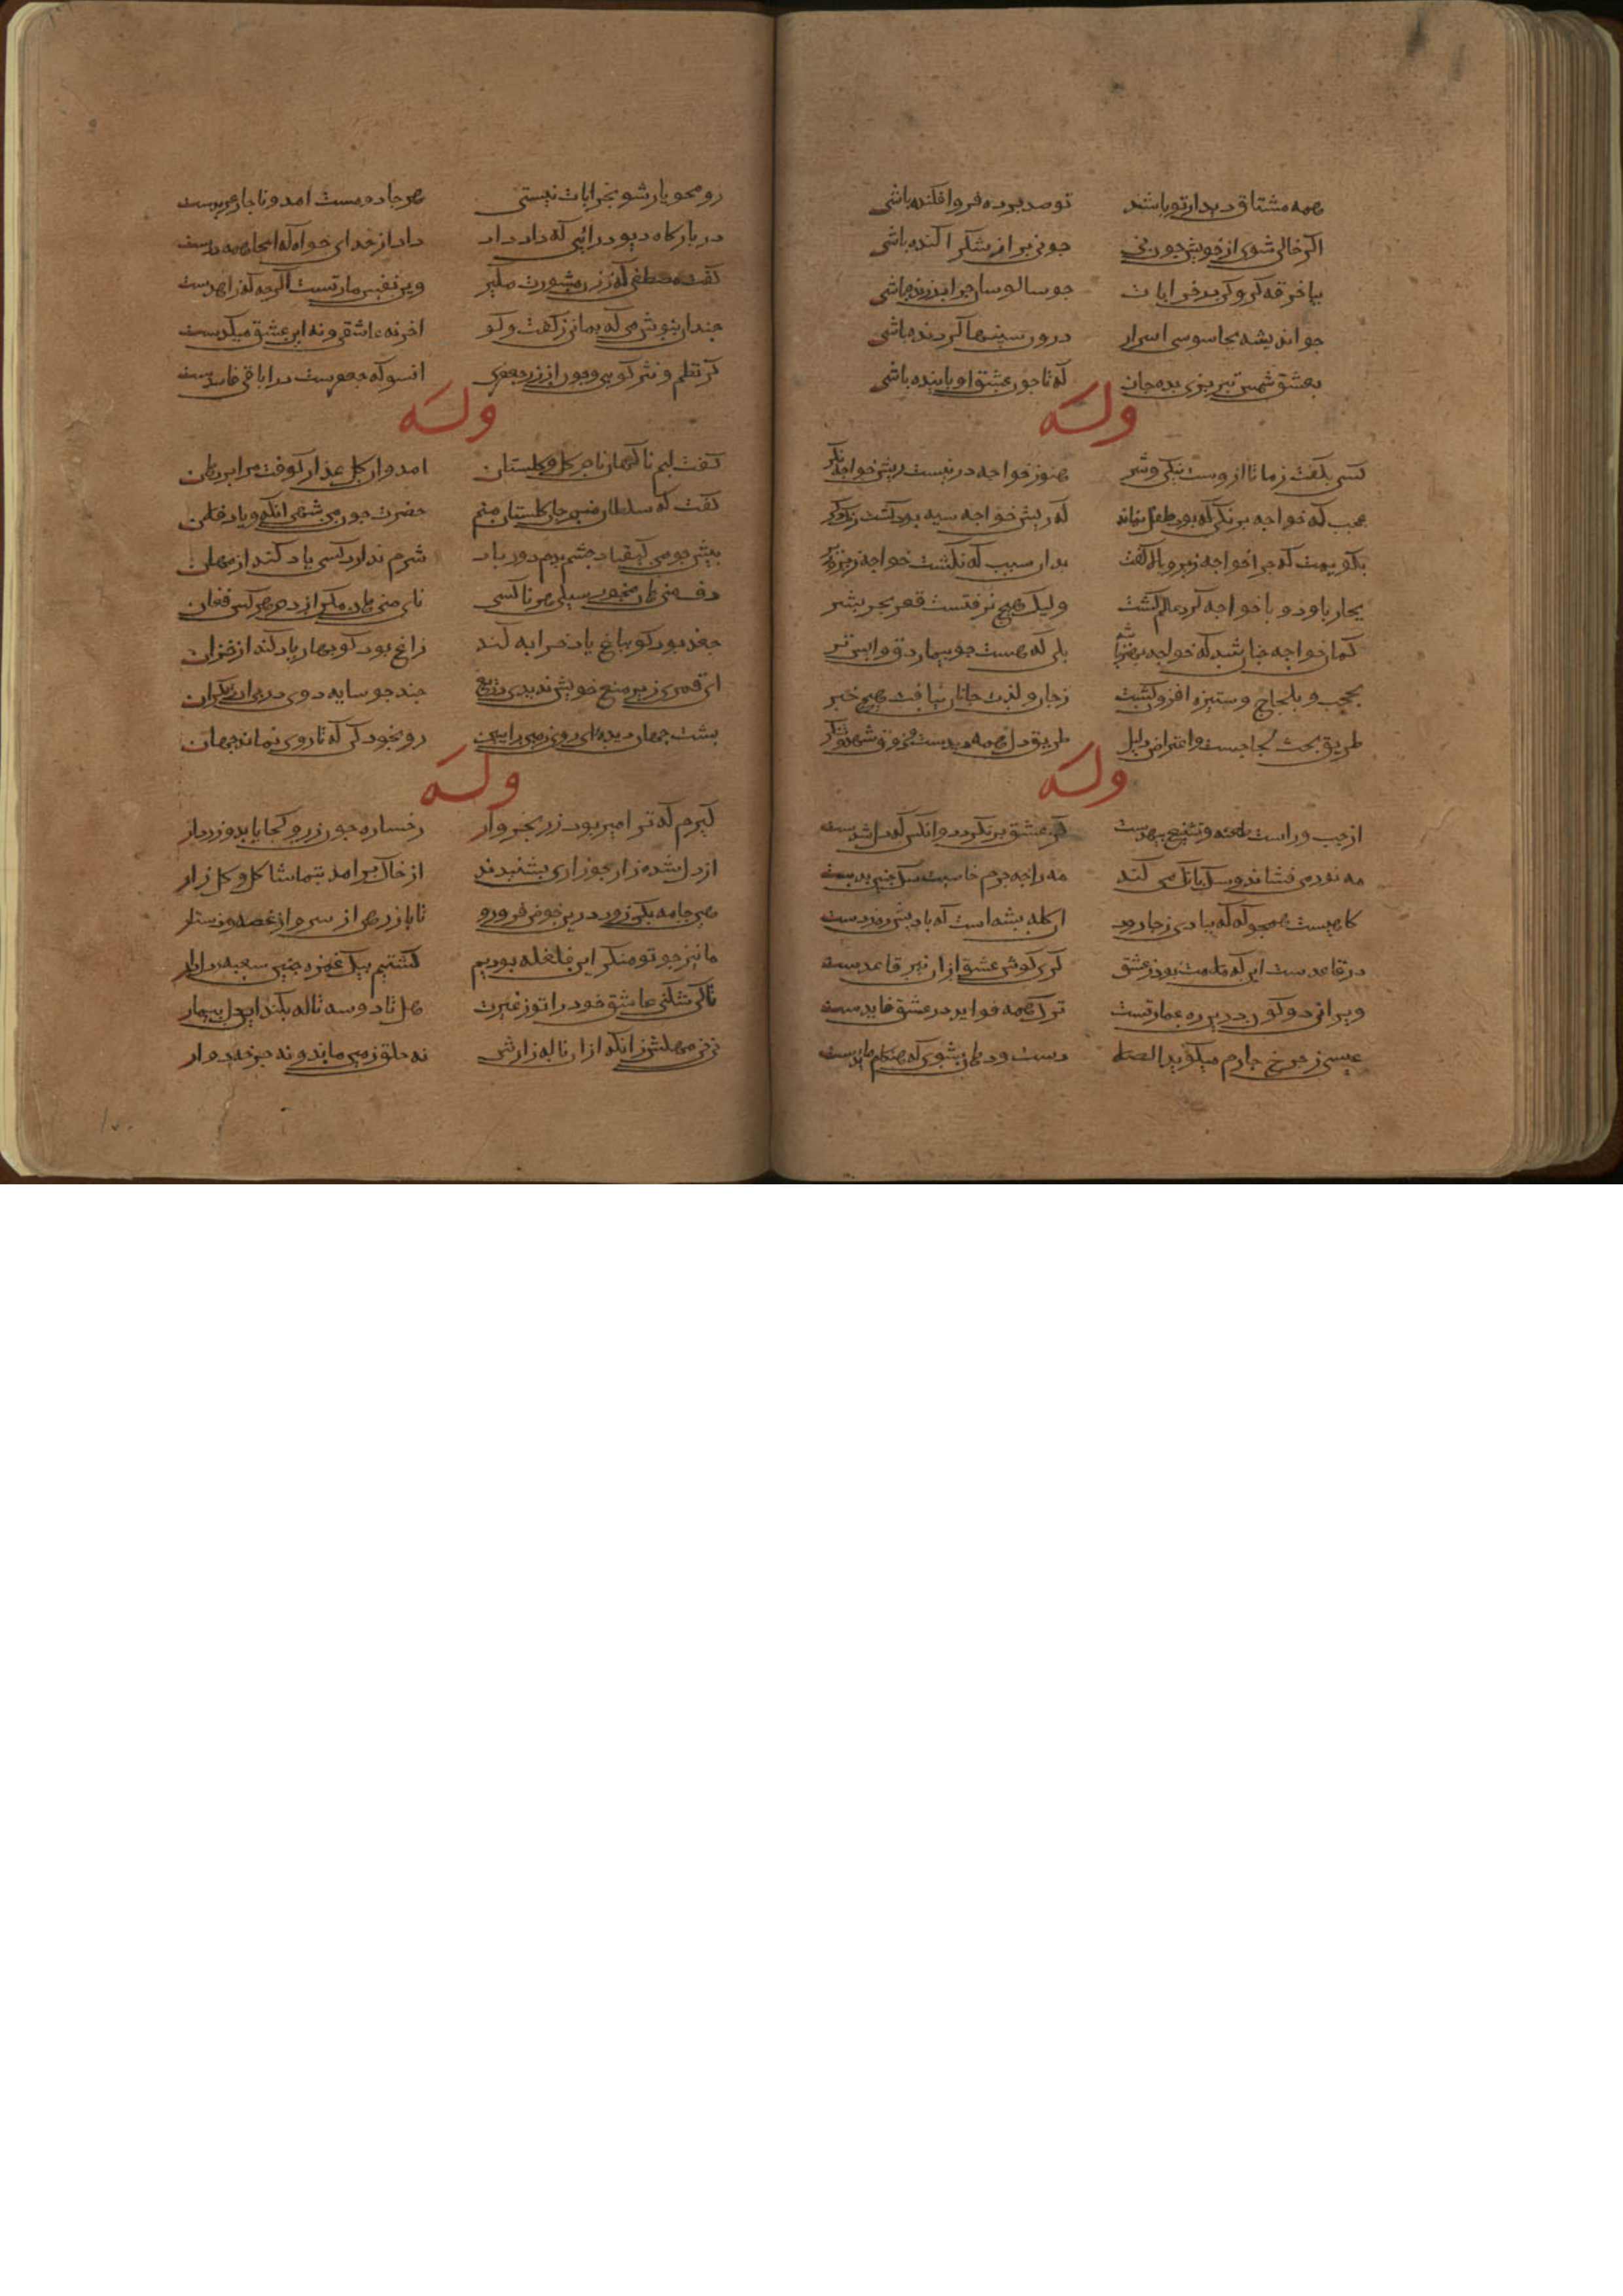 همه مشتاق دیدار تو باشند تو صد پرده فرو افکنده باشی
اکر خالی شوی از خویش جون نی جو نی بر از شکر اکنده باشی
بیا خرقه کرو کن در خرابات جو سالوسان جرا در ژنده باشی
جو اندیشه بجاسوسی اسرار درون سینها کردنده باشی
بعشق شمس تبریزی بده جان که تا جون عشق او پاینده باشی
وله
کسی بکفت زما یا ازوست نیکی و شر هنوز خواجه درنیست ریش خواجه نکر
عجب که خواجه برنکی که بود طفل بماند که ریش خواجه سیه بود کشت رنک دکر
بکویمت که جرا خواجه زیر و بالا کفت بدان سبب که نکشت خواجه زیر و زبر
بجار پا و دو پا خواجه کرد عالم کشت ولیک هیچ نرفتست قعر بحر بشر
کمان خواجه جنان شد که خواجه بهتر شد بلی که هست جو بیمار دق وابس تر
بحجب و بلجاج و ستیزه افزون کشت زجان و لذت جانان نیافت هیچ خبر
طریق بحث لجاجست و اعتراض دلیل طریق دل همه دیدست و ذوق و شهد و شکر
وله
از جب و راست طعنه و تشنیع بیهدست کر عشق برنکردد وانکس که دل شدست
مه نور می فشاند و سک بانک می کند مه را جه جرم خاصیت سک جنین بدست
کاهیست همجو که که ببادی زجا رود ان کله بشه است که بادیش ره زدست
در قاعدست این که ملامت بود زعشق کری کوش عشق ازان نیز قاعدست
ویرانی دو کون درین ره عمارتست ترک همه فواید در عشق فایدست
عیسی زجرخ جارم میکوید الصلا دست و دهان بشوی که هنکام مایدست
رو محو یار شو بخرابات نیستی هر جا دو مست امد و ناجار عربدست
در بارکاه دیو درائی که داد داد داد از خدای خواه که اینجا همه ددست
کفتست مصطفی که ز زن مشورت مکیر وین نفس ما زنست اکرجه که زاهدست
جندان بنوش می که بمانی زکفت و کو اخر نه عاشقی و نه این عشق میکدست
کر نظم و نثر کویی و جون زر جعفری انسو که جعفرست خرافات فاسدست
وله
کفت لبم ناکهان نام کل و کلستان امد وان کل عذار کوفت مرا بر دهان
کفت که سلطان منم جان کلستان منم حضرت جون من شهی انکه و یاد فلان
پیش جو من کیقباد جشم بدم دور باد شرم ندارد کسی یاد کند از مهان
دف منی هان مخور سیلی هر ناکسی نای منی هان مکن از دم هر کس فغان
جغد بود کو بباغ یاد خرابه کند زاغ بود کو بهار یاد کند از خزان
جند جو سایه دوی در پی این دیکران
پشت جهان دیده‌ای روی رو بخود کن که تا روی نماید جهان
وله
کیرم که ترا میر بود زر بخروار رخساره جون زر و کجا یابد زردار
از دل شده زار جو زاری بشنیدند از خاک برامد بتماشا کل و کلزار
هین جامه بکن زود درین حوض فرو رو تا باز رهی از سر و از غصه دستار
ما نیز جو تو منکر این غلغله بودیم کشتیم بیک غمزه جنین سغبه دلدار
تا کی شکنی عاشق خود را تو ز غیرت هل تا دو سه ناله بکند این دل بیمار
نی نی مهلش زانکه ازان ناله زارش نه خلق زمین ماند و نه جرخه دوار